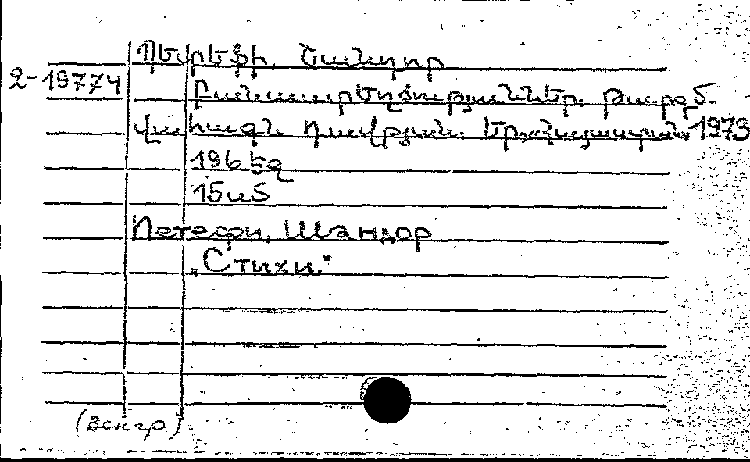 Պետեֆի, Շանդոր
2-19774
Բանաստեղծություններ. թարգմ.
Վահագն Դավթյան. Եր., Հայաստան, 1973
196 էջ
15սմ
Петефи, Шандор
„Стихи"
(венгр.)